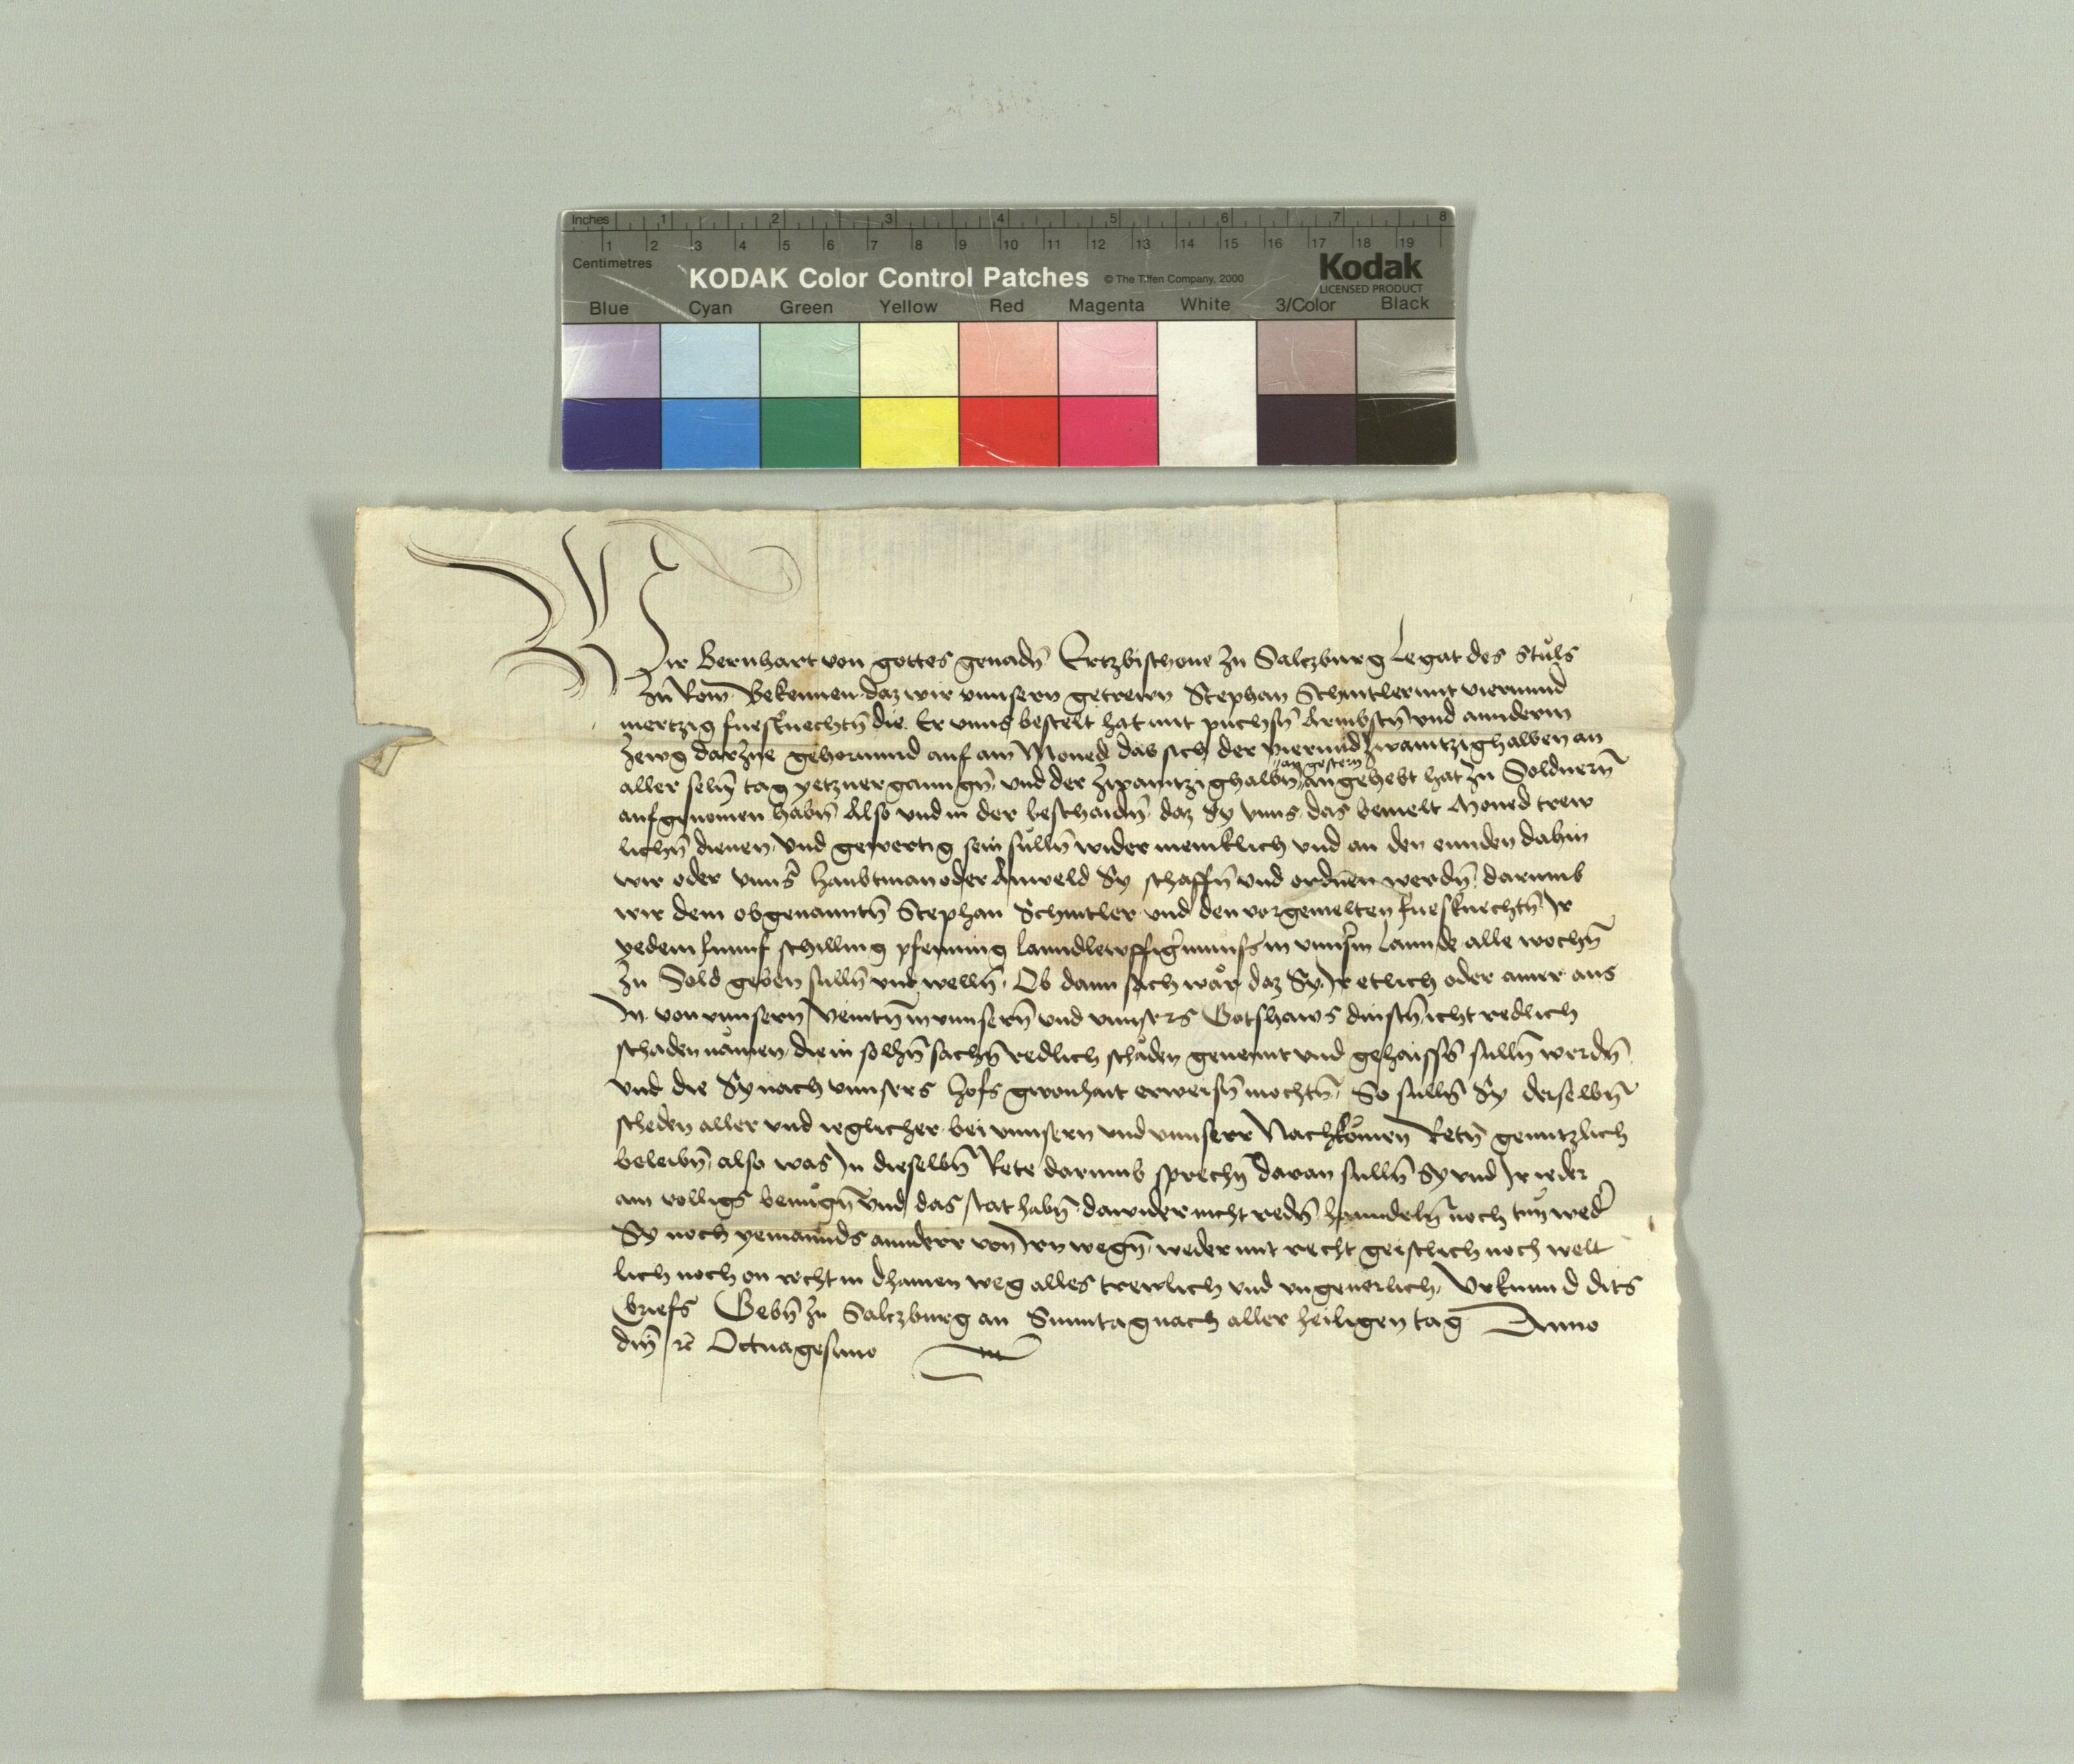 Inches 1 2 3 4 5 6 7 8
1 2 3 4 5 6 7 8 9 10 11 12 13 14 15 16 17 18 19
Centimetres
KODAK Color Control Patches © The Tiffen Company, 2000 Kodak
LICENSED PRODUCT
Blue Cyan Green Yellow Red Magenta White 3/Color Black
Wir Bernhart von gottes genadn̄ Ertzbischoue zu Salczburg Legat des Stůls
zu Rom Bekennen daz wir vnnsern getrewn Stephan Schmtler mit vierund
viertzig fuesknechtn̄ die Er vnns bestelt hat mit puchsn̄ Armbstn̄ vnd annderm
zewg darzue gehornnd auf ain Moned das sich der vierundzwaintzighalben an
an gestern
aller seln̄ tag yetz vergangn̄ vnd der zwaintzighalbn̄ angehebt hat zu Soldnern̄
aufgenomen habn̄ Also vnd in der beschaidn̄ daz Sy vnns das bemelt Moned trew
lichn̄ dienen vnd gewertig sein sulln̄ wider meniklich vnd an den ennden dahin
wir oder vnns̄ haubtman oder Anweld Sy schaffn̄ vnd ordnen werdn̄ darumb
wir dem obgenanntn̄ Stephan Schmtler vnd den vorgemelten fuesknechtn̄ Ir
yedem funnf schilling pfenning lanndlewffiger munss in vnnserm Lannde alle wochn̄
zu Sold geben sulln̄ vnd welln̄. Ob dann sach wår daz Sy Ir etlich oder ainer aus
In von vnnsern Veintn̄ in vnnsern̄ vnd vnnsers Gotshaws dinstn̄ icht redlich
schaden nåmen die in solhn̄ sachn̄ redlich schåden genennt vnd gehaissn̄ sulln̄ werdn̄
vnd die Sy nach vnnsers hofs gwonhait erweisn̄ mochtn̄ So sulln̄ Sy derselbn̄
scheden aller vnd yeglicher bei vnnsern vnd vnnserr Nachkomen Retn̄ genntzlich
beleibn̄ also was In dieselbn̄ Rete darumb sprechn̄ daran sulln̄ Sy vnd Ir ieder
ain volligs benůgn̄ vnd das stat habn̄ dawider nicht redn̄ hanndeln̄ noch tůn weder
Sy noch yemannds annderr von Irn wegn̄ weder mit recht geistlich noch welt
lich noch on recht in dhainen weg alles trewlich vnd vngeuerlich Vrkunnd dits
briefs Gebn̄ zu Salczburg an Sunntag nach aller heiligen tag Anno
dn̄i rc Octuagesimo